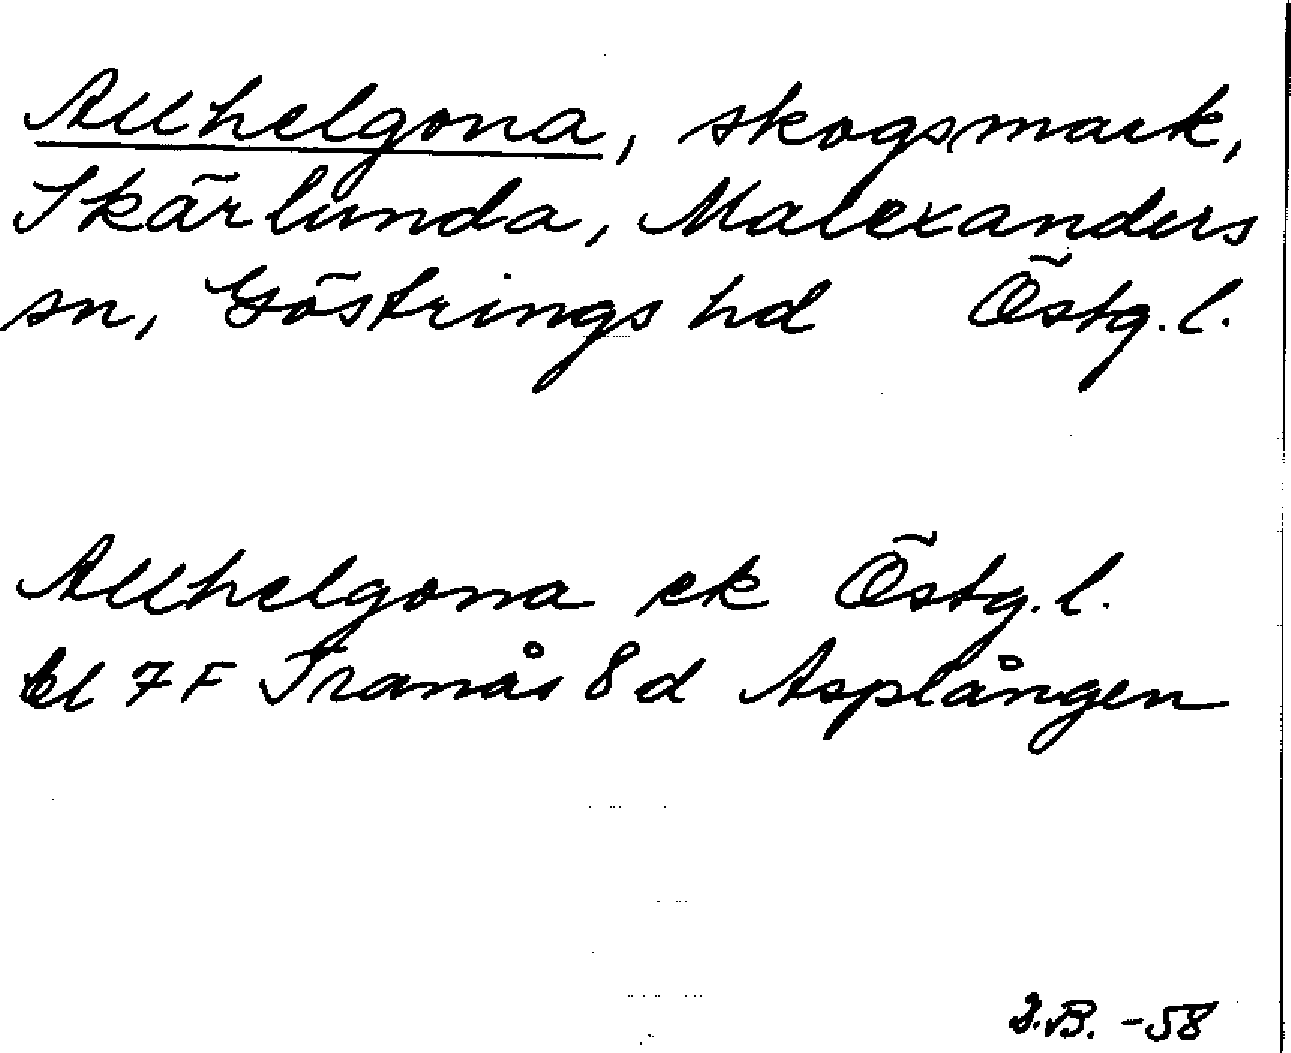 Allhelgona, skogsmark,
Skärlunda, Malexanders
sn, Göstrings hd Östg. l.
Allhelgona ek Östg. l.
bl 7F Tranås 8d Asplången
B. -58